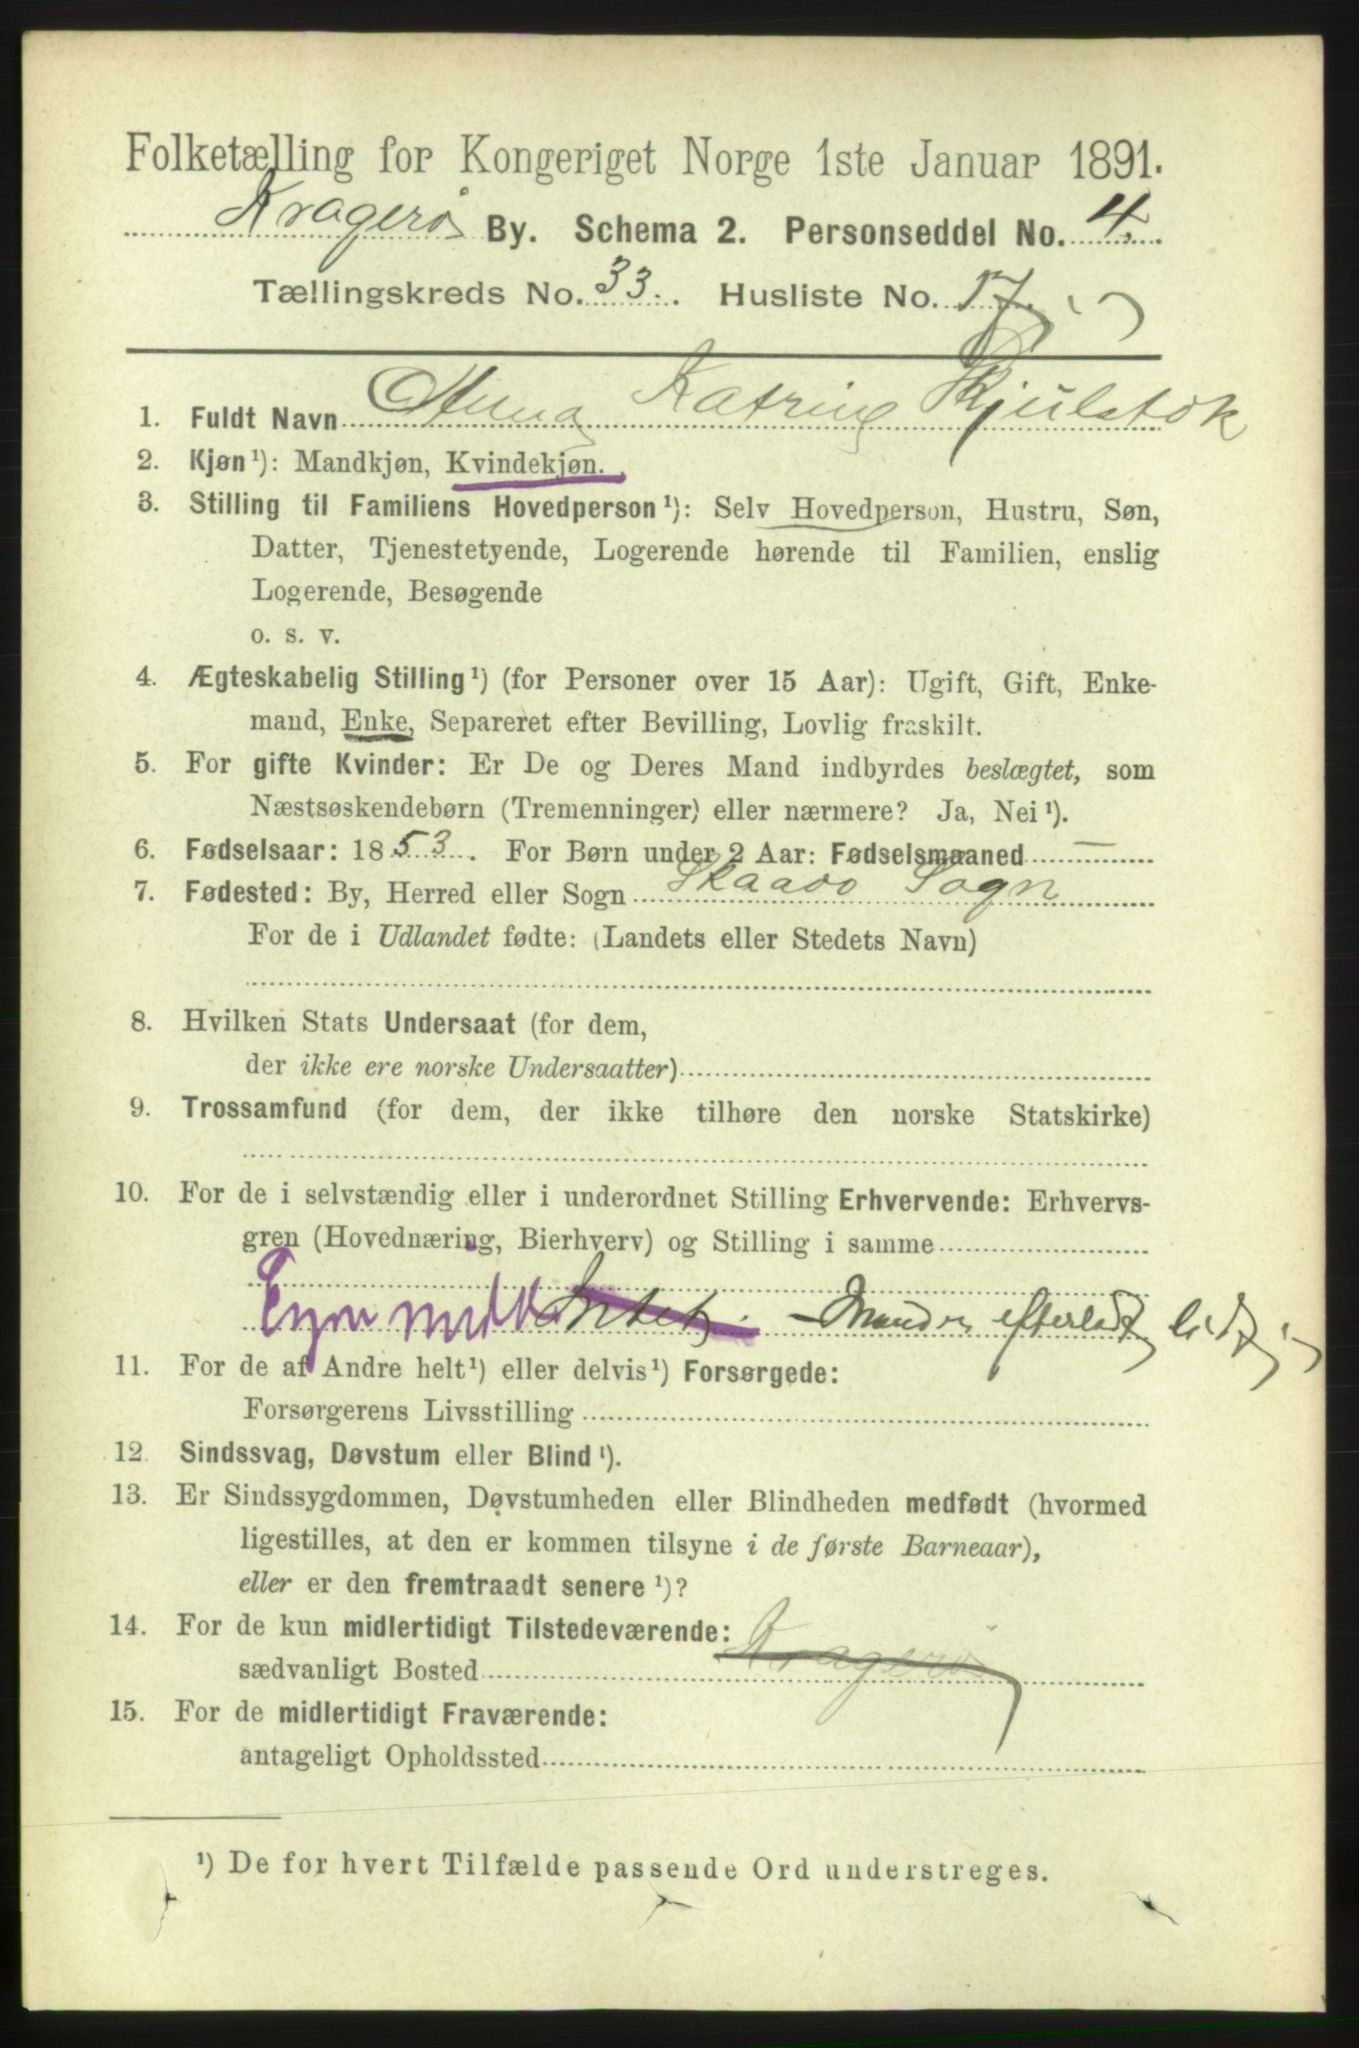 Folketælling for Kongeriget Norge 1ste Januar 1891.
Kragerø By. Schema 2. Personseddel No. 4.
Tællingskreds No. 33. Husliste No. 17.
1. Fuldt Navn Anna Katrine Kjulstok
2. Kjøn¹): Mandkjøn, Kvindekjøn.
3. Stilling til Familiens Hovedperson¹): Selv Hovedperson, Hustru, Søn,
Datter, Tjenestetyende, Logerende hørende til Familien, enslig
Logerende, Besøgende
o. s. v.
4. Ægteskabelig Stilling¹) (for Personer over 15 Aar): Ugift, Gift, Enke-
mand, Enke, Separeret efter Bevilling, Lovlig fraskilt.
5. For gifte Kvinder: Er De og Deres Mand indbyrdes beslægtet, som
Næstsøskendebørn (Tremenninger) eller nærmere? Ja, Nei¹).
6. Fødselsaar: 1853. For Børn under 2 Aar: Fødselsmaaned —
7. Fødested: By, Herred eller Sogn Skaaoo Sogn
For de i Udlandet fødte: (Landets eller Stedets Navn)
8. Hvilken Stats Undersaat (for dem,
der ikke ere norske Undersaatter)
9. Trossamfund (for dem, der ikke tilhøre den norske Statskirke)
10. For de i selvstændig eller i underordnet Stilling Erhvervende: Erhvervs-
gren (Hovednæring, Bierhverv) og Stilling i samme
Intet. — efterladt
11. For de af Andre helt¹) eller delvis¹) Forsørgede:
Forsørgerens Livsstilling
12. Sindssvag, Døvstum eller Blind¹).
13. Er Sindssygdommen, Døvstumheden eller Blindheden medfødt (hvormed
ligestilles, at den er kommen tilsyne i de første Barneaar),
eller er den fremtraadt senere¹)?
14. For de kun midlertidigt Tilstedeværende:
sædvanligt Bosted Kragerø
15. For de midlertidigt Fraværende:
antageligt Opholdssted
¹) De for hvert Tilfælde passende Ord understreges.